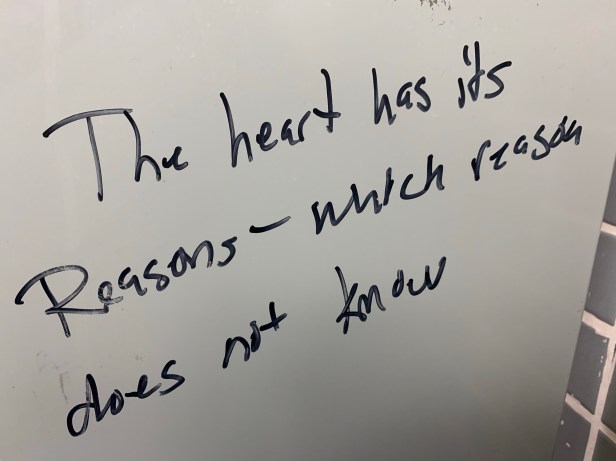 The heart has its
Reasons - which reason
does not know